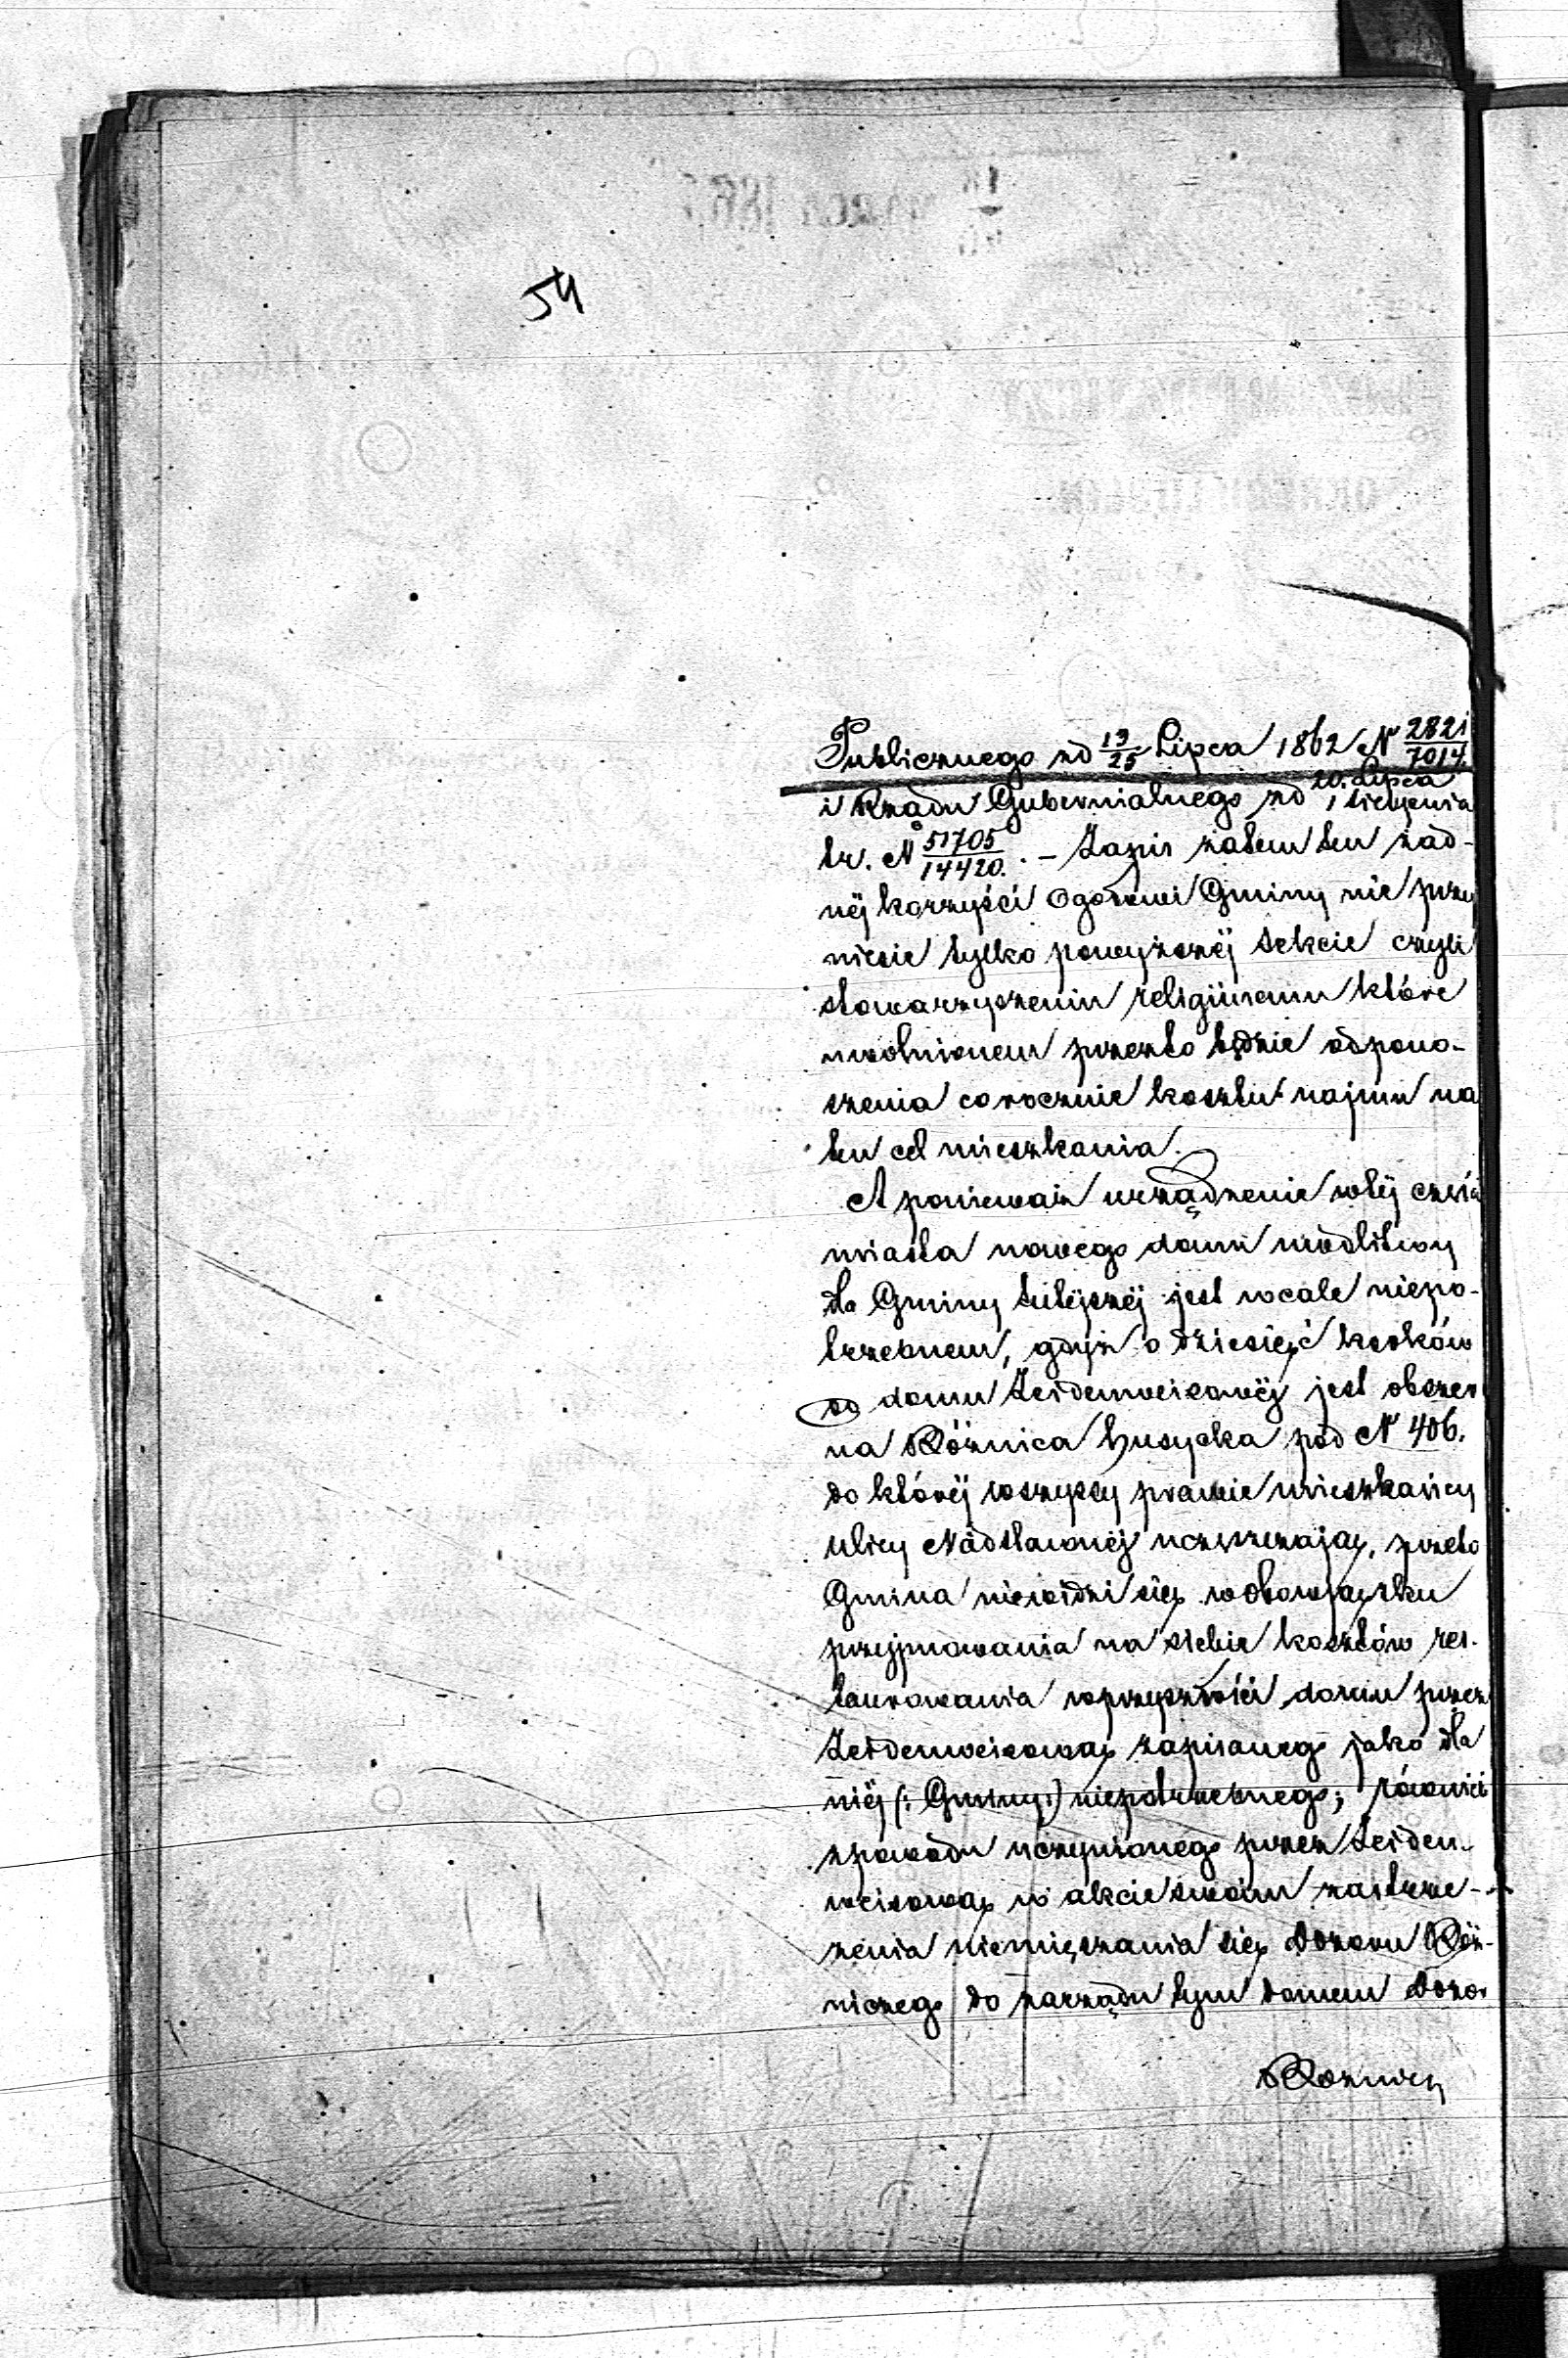 54
Publicznego zd 13/25 Lipca 1862 N 2821/7014.
i Rządu Gubernialnego zd 20. Lipca / 1 Sierpnia
tr. N 51705/14420. – Zapis zatem ten żad-
nej korzyści Ogółowi Gminy nie przy
niesie tylko powyższej sekcie czyli
stowarzyszeniu religijnemu które
uwolnionem przezto będzie odpono-
szenia corocznie kosztu najmu na
ten cel mieszkania.
A ponieważ urządzenie wtej części
miasta nowego domu modlitwy
dla Gminy tutejszej jest wcale niepo-
trzebnem, gdyż o dziesięć kroków
od domu Zeidenweisowej jest obszer
na Bóżnica husycka pod N 406.
do której wszyscy prawie mieszkańcy
ulicy Nadstawnej uczęszczają, przeto
Gmina niewidzi się wobowiązku
przyjmowania na siebie kosztów res-
taurowania wprzyszłości domu przez
Zeidenweisową zapisanego jako dla
niej (: Gminy :) niepotrzebnego; również
zpowodu uczynionego przez Zeiden-
weisową w akcie swoim zastrze-
żenia niemięszania się Dozoru Bóż-
niczego do zarządu tym domem Dozor
Bóżniczy